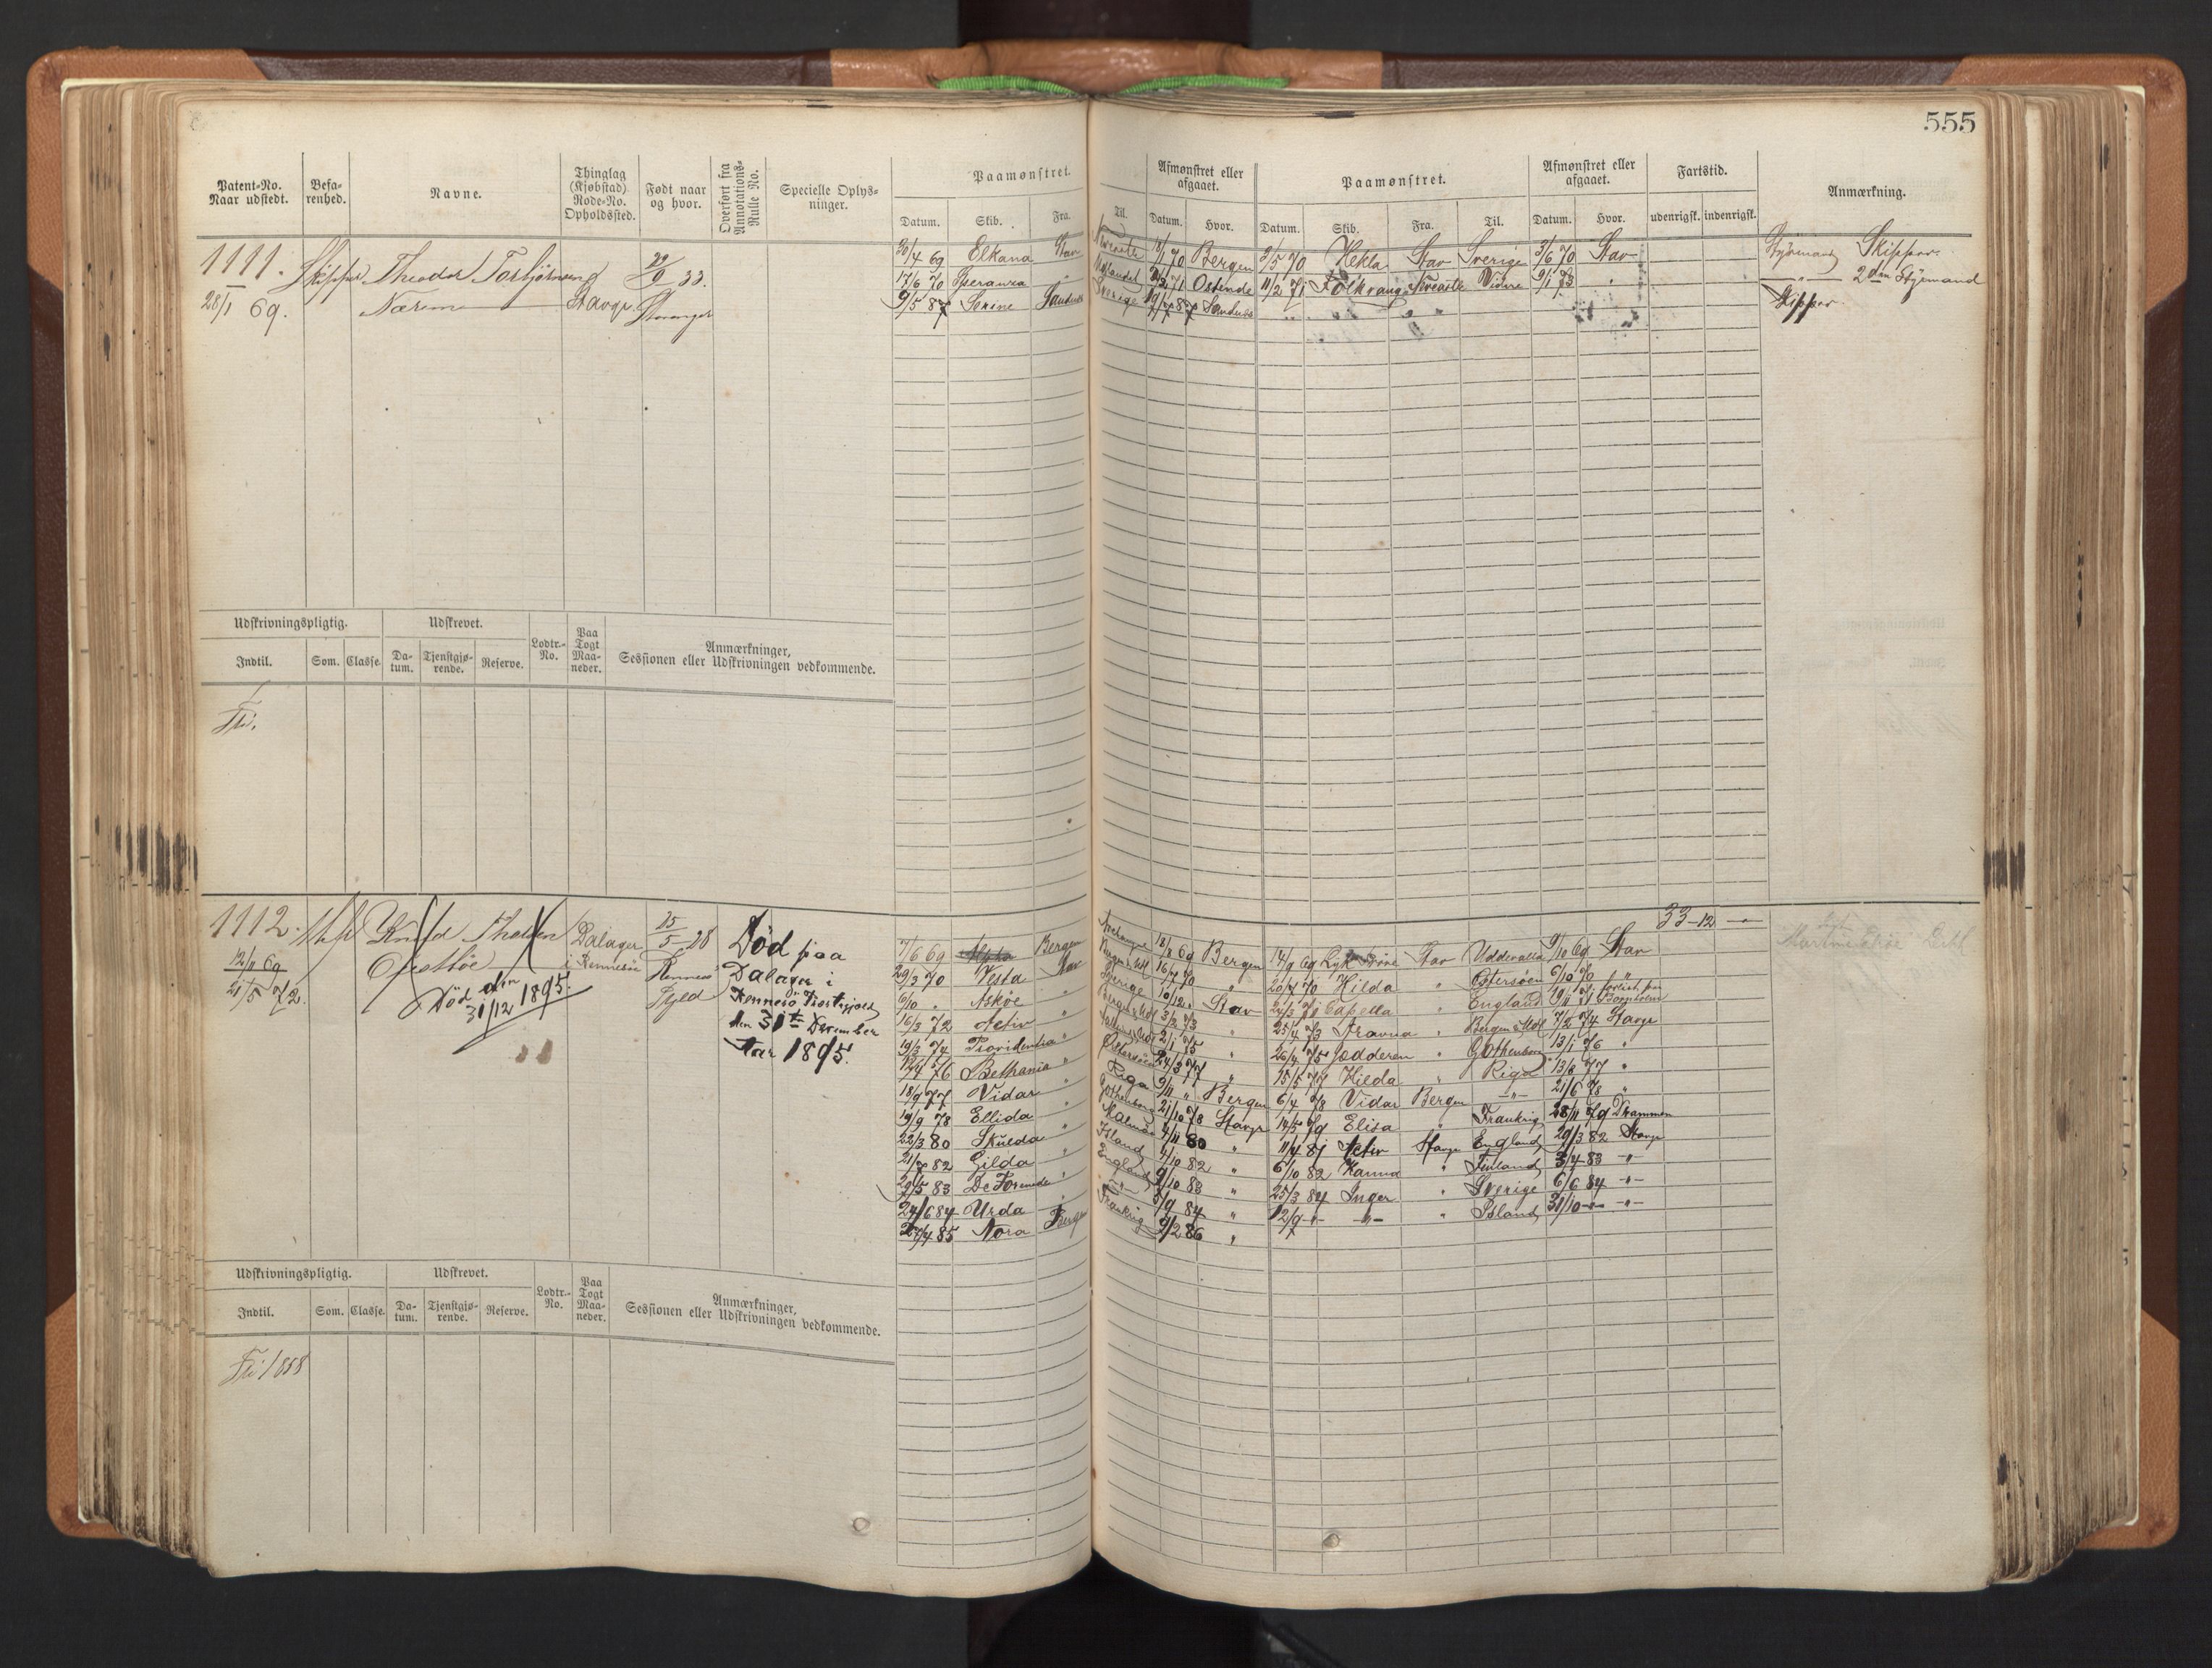 555
Patent-No.
Naar udstedt.
Befa-
renhed.
Navne.
Thinglag
(Kjøbstad)
Rode-No.
Opholdssted.
Født naar
og hvor.
Overført fra
Annotations-
Rulle No.
Specielle Oplys-
ninger.
Paamønstret.
Datum. Skib. Fra. Til.
Afmønstret eller
afgaaet.
Datum. Hvor.
Paamønstret.
Datum. Skib. Fra. Til.
Afmønstret eller
afgaaet.
Datum. Hvor.
Fartstid.
udenrigsk. indenrigsk.
Anmærkning.
1111. Skipper Theodor Torbjörnsen 33.
28/1 69. Stavgr Stavanger
30/4 69 Elkana Stav 18/1 70 Bergen 3/5 70 Hekla Stav Sverige 3/6 70 Stav Styrmand Skipper
17/6 70 Speranza " Ostende 11/2 71 Folkvang 9/1 73 " " 2den Styrmand
9/5 87 Serine Sandnæs Sverige 19/7 87 Sandnæs Skipper
Udskrivningspligtig. Udskrevet. Lodtr.-
No.
Paa
Togt
Maa-
neder.
Anmærkninger,
Sessionen eller Udskrivningen vedkommende.
Indtil. Som. Classe. Da-
tum. Tjenstgjø-
rende. Reserve.
Fri.
1112. Dalager 25/5 28 Død paa
12/11 69 i Rennesöe Dalager i
21/5 72. Død den
31/12 1895.
Rennesö Præstegjeld
den 31te December
Aar 1895.
33-12 -"-
7/6 69 Alpha Bergen 18/8 69 Bergen 14/9 69 Stav Uddevalla 9/10 69 Stav
29/3 70 Vesta Stav 16/7 70 " 20/7 70 Hilda " Østersöen 6/10 70 "
6/10 " Askøe " Sverige 10/12 " Stav 24/3 71 Capella " England 19/11 71 forlist paa Bornholm
16/3 72 Activ " 3/2 73 " 25/4 73 " 7/2 74 Stavgr
19/3 74 Providentia " 2/1 75 " 26/4 75 Jædderen " Gothenborg 13/1 76 "
17/4 76 Bethania " Østersöen 24/3 77 " 15/5 77 Hilda " Riga 13/8 77 "
18/9 77 Vidar " Riga 9/11 " Bergen 6/4 78 Vidar Bergen -"- 21/6 78 "
19/9 78 Ellida " Gothenborg 21/10 78 Stavgr 14/5 79 Elisa " Frankrig 28/11 79 Drammen
22/3 80 Skulda " Kalmar 4/11 80 " 11/4 81 Activ Stavgr England 29/3 82 Stavgr
21/7 82 Gilda " Island 4/10 82 " 6/10 82 Hanna " Finland 3/4 83 -"-
29/5 83 De Forenede " England 9/10 83 " 25/3 84 Inger " Sverige 6/6 84 -"-
24/6 84 Urda " -"- 5/9 84 " 12/9 -"- -"- " Island 31/10 -"- -"-
27/4 85 Nora Bergen Frankrig 9/2 86 "
Udskrivningspligtig. Udskrevet. Lodtr.-
No.
Paa
Togt
Maa-
neder.
Anmærkninger,
Sessionen eller Udskrivningen vedkommende.
Indtil. Som. Classe. Da-
tum. Tjenstgjø-
rende. Reserve.
Fri 1858